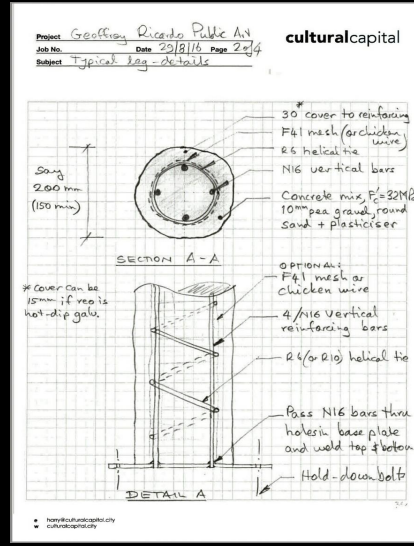 Project Geoffrey Ricardo Public Art
culturalcapital
Job No. Date 29/8/16 Page 2 of 4
Subject Typical leg-details
*
30 cover to reinforcing
F41 mesh (or chicken
wire)
R6 helical tie
N16 vertical bars
Say
200 mm
(150 min)
Concrete mix, F'c=32MPa
10mm pea gravel, round
sand + plasticiser
SECTION A-A
* cover can be
15mm if reo is
hot-dip galv.
OPTIONAL:
F41 mesh or
chicken wire
4/N16 vertical
reinforcing bars
R6 (or R10) helical tie
Pass N16 bars thru
holes in base plate
and weld top & bottom
Hold-down bolts
DETAIL A
e harry@culturalcapital.city
w culturalcapital.city